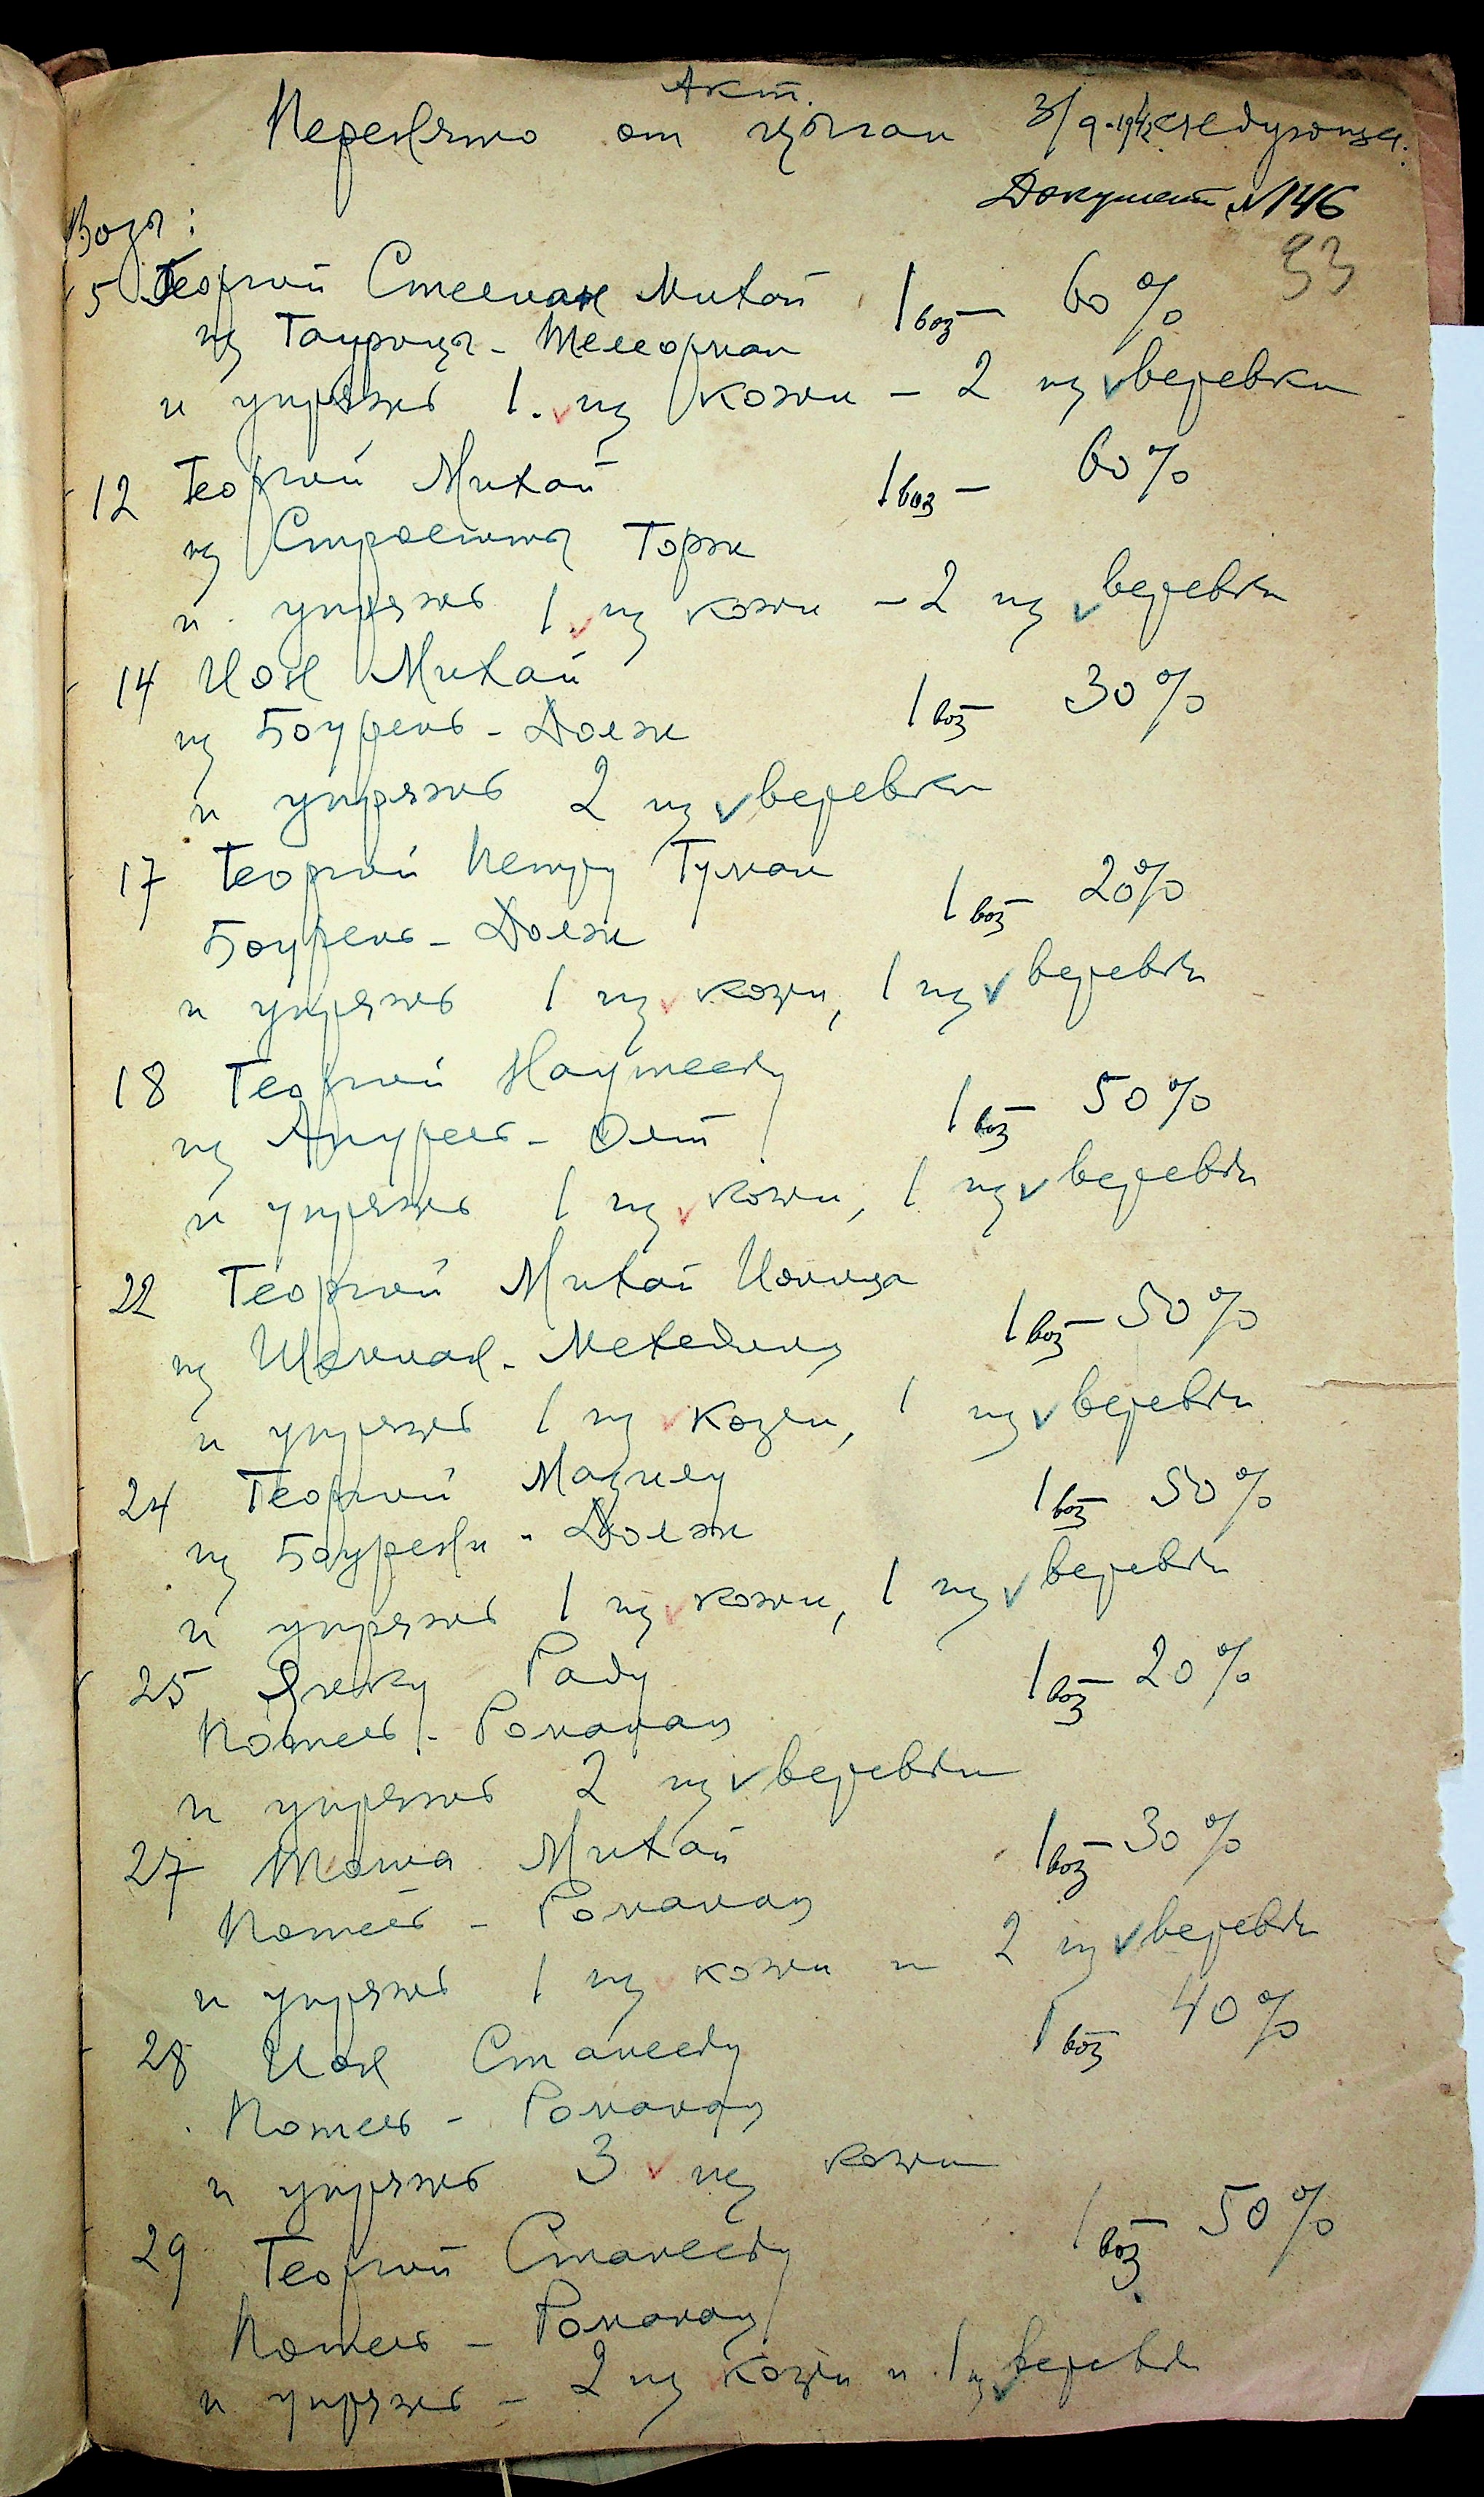 Акт.
Перенято от цыган 3/9-1942 следующее:
Документ №146
93
Возы:
5 Георгий Стелиан Михай 1 воз — 60%
из Тауроцы - Телеорман
и упряжь 1. из кожи - 2 из веревки
12 Георгий Михай 1 воз — 60%
из Горж
и упряжь 1 из кожи - 2 из веревки
14 Ион Михай 1 воз 30%
из Боурень - Долж
и упряжь 2 из веревки
17 Георгий Петру Туман 1 воз 20%
Боурень - Долж
и упряжь 1 из кожи, 1 из веревки
18 Георгий 1 воз 50%
из - Олт
и упряжь 1 из кожи, 1 из веревки
22 Георгий Михай Ионица 1 воз — 50%
из Шелиан - Мехединц
и упряжь 1 из кожи, 1 из веревки
24 Георгий Мазилу 1 воз 50%
из Баурени - Долж
и упряжь 1 из кожи, 1 из веревки
25 Янку Раду 1 воз — 20%
Потель - Романац
и упряжь 2 из веревки
27 Тома Михай 1 воз — 30%
Потель - Романац
и упряжь 1 из кожи и 2 из веревки
28 Ион Станеску 1 воз 40%
Потель - Романац
и упряжь 3 из кожи
29 Георгий Станеску 1 воз — 50%
Потель - Романац
и упряжь - 2 из кожи и 1 из веревки